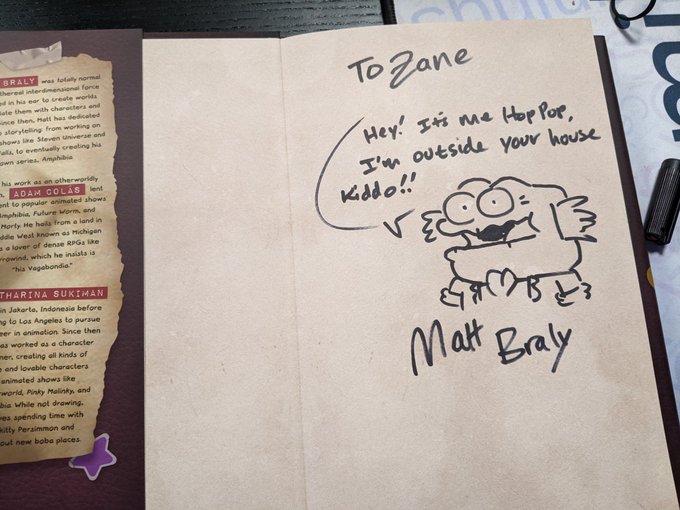 BRALY was totally normal
thereal interdimensional force
ed in his ear to create worlds
late them with characters and
ince then, Matt has dedicated
storytelling: from working on
shows like Steven Universe and
alls, to eventually creating his
own series, Amphibia
his work as an otherworldly
ADAM COLÁS lent
ent to popular animated shows
mphibia, Future Worm, and
Morty. He hails from a land in
ddle West known as Michigan
s a lover of dense RPGs like
rrowind, which he insists is
"his Vagabondia."
THARINA SUKIMAN
in Jakarta, Indonesia before
ng to Los Angeles to pursue
eer in animation. Since then
as worked as a character
ner, creating all kinds of
e and lovable characters
animated shows like
world, Pinky Malinky, and
bia. While not drawing,
ves spending time with
kitty Persimmon and
out new boba places.
To Zane
Hey! It's me Hop Pop,
I'm outside your house
Kiddo!!
Matt Braly